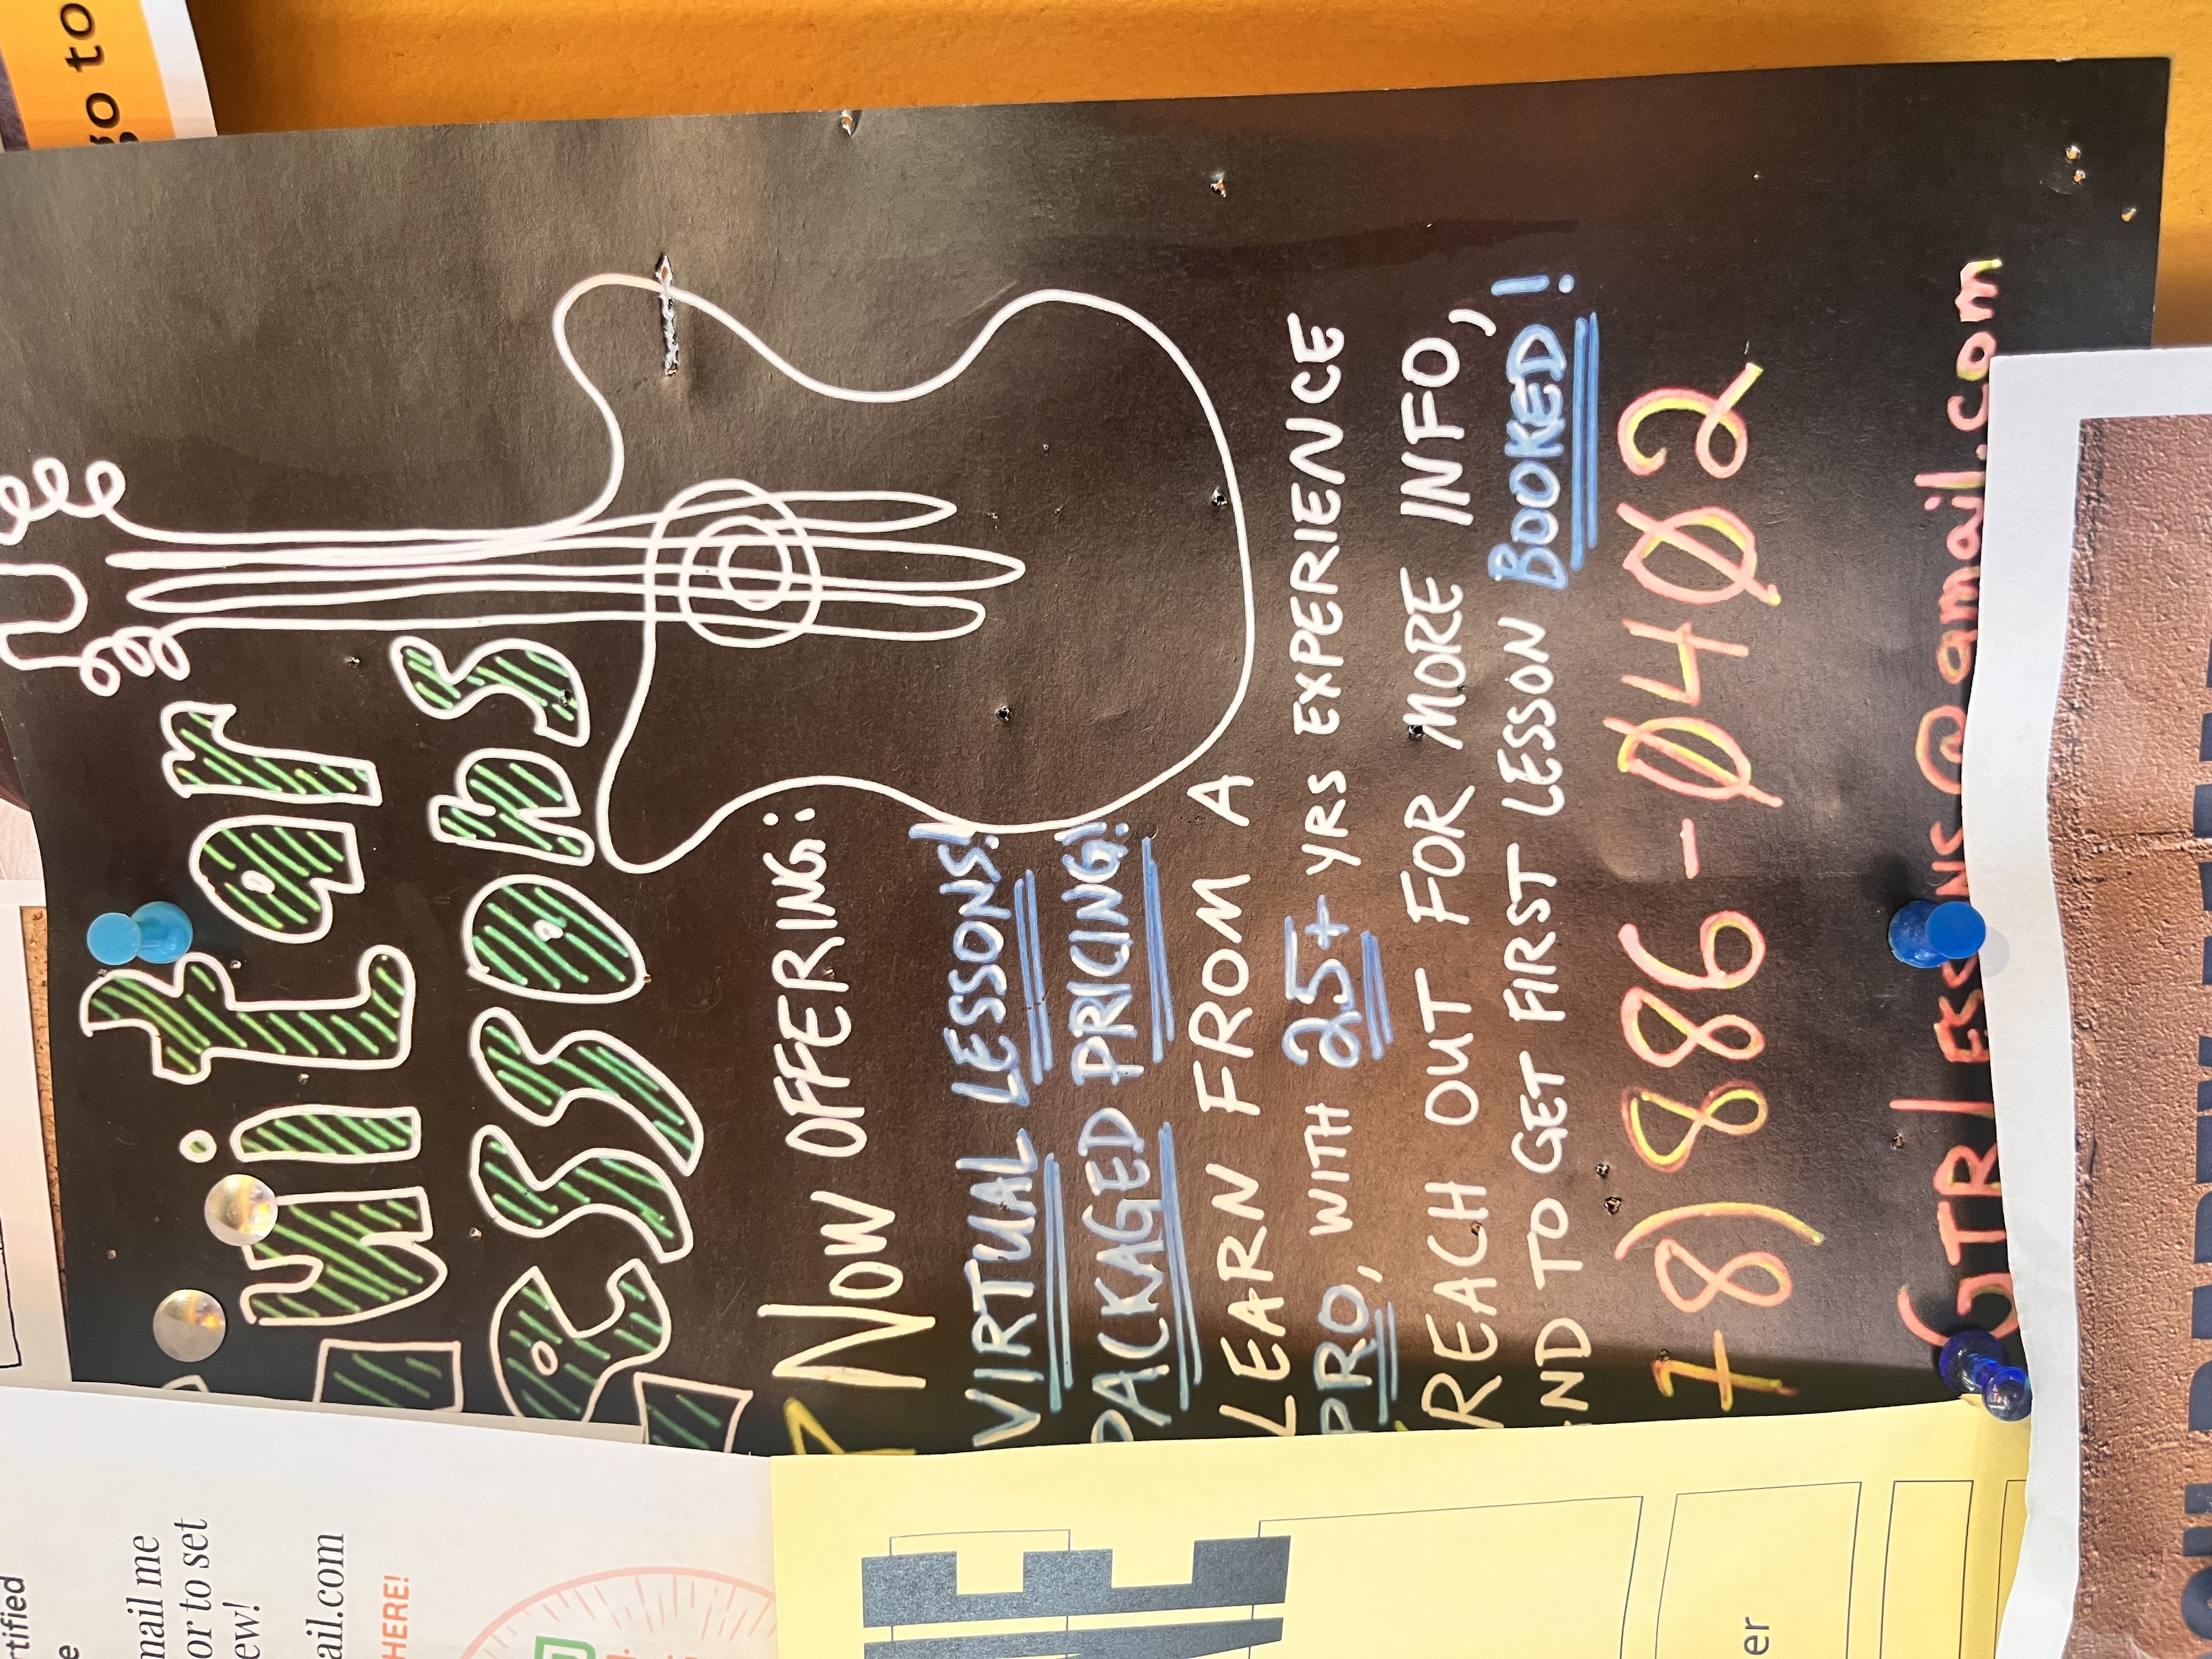 rtified
e
mail me
or to set
ew!
ail.com
HERE!
go to
Guitar
Lessons
Now OFFERING:
VIRTUAL LESSONS!
PACKAGED PRICING!
LEARN FROM A
PRO, WITH 25+ YRS EXPERIENCE
REACH OUT FOR MORE INFO,
AND TO GET FIRST LESSON BOOKED!
78) 886-0402
GTRLESSONS@gmail.com
NE
NE
er